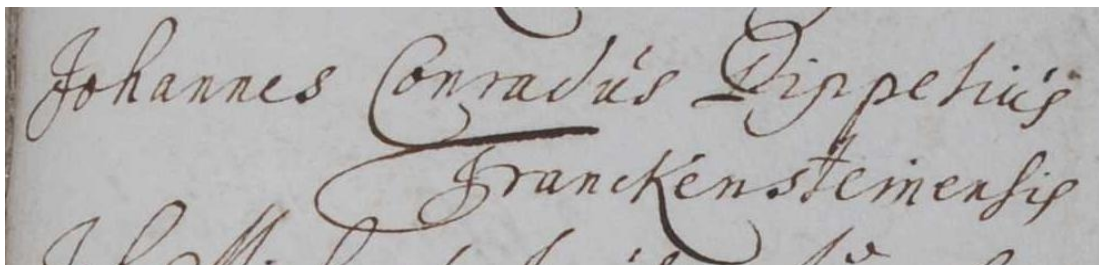 Johannes Conradús Dippeliús
Franckensteinensis